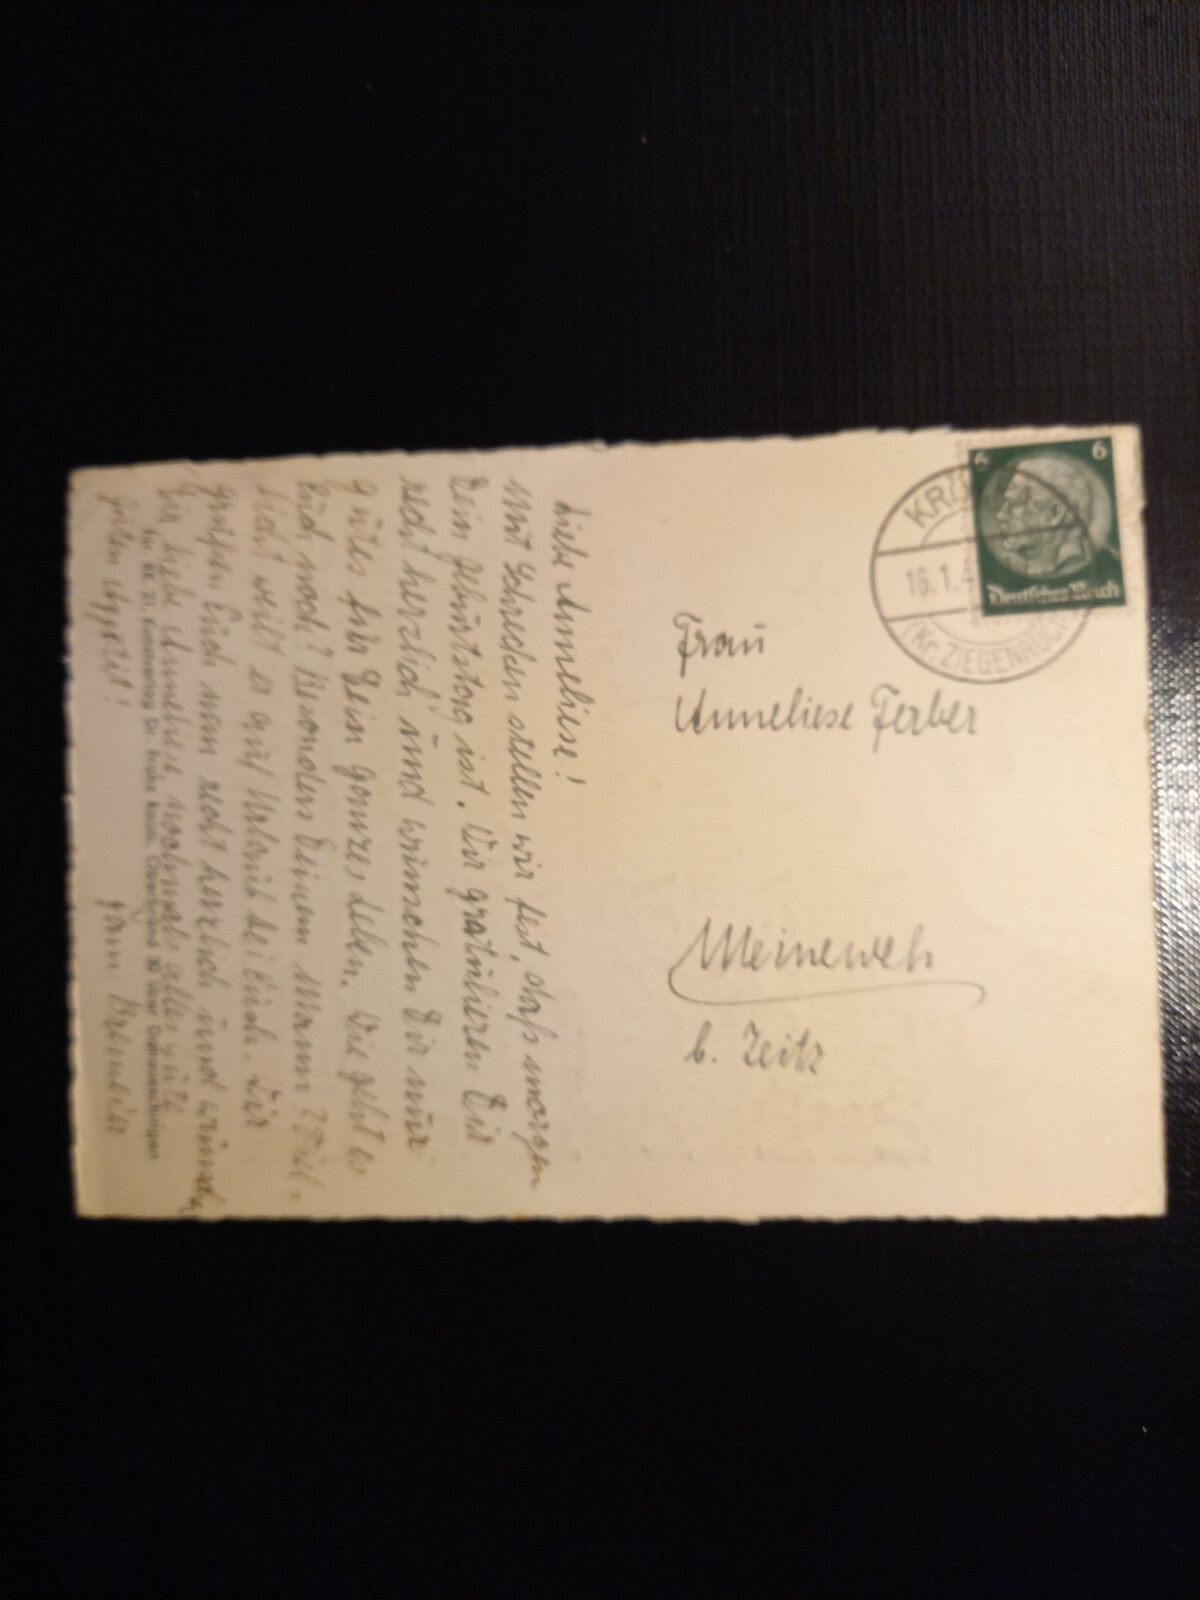 Liebe Anneliese!
Mit Schrecken stellen wir fest, daß morgen
Dein Geburtstag ist. Wir gratulieren Dir
recht herzlich und wünschen Dir nur
gutes für Dein ganzes Leben. Wie geht es
Euch noch? Besonders Deinem Mann? Viel-
leicht weilt er auf Urlaub bei Euch. Wir
grüßen Euch nun recht herzlich und wünsch.
Dir, liebe Anneliese, nochmals alles gute
guten Appetit!
Nr. 21, Kunstverlag Dr.
KRÖ
16.1.4
(Kr. ZIEGENRÜCK
6 6
Deutsches Reich
Frau
Anneliese Ferber
Meineweh
b. Zeitz